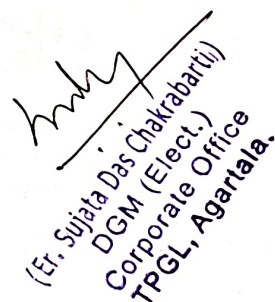 (Er. Sujata Das Chakrabarti)
DGM (Elect.)
Corporate Office
TPGL, Agartala.